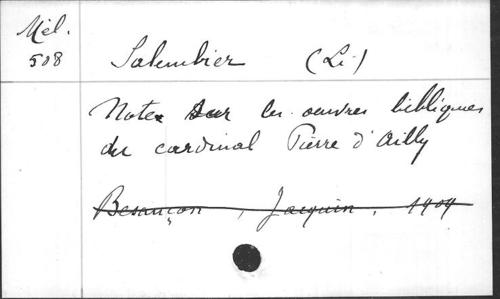 Mél.
508
Salembier (L.)
Note sur les œuvres bibliques
du cardinal Pierre d'Ailly
Besançon, Jacquin, 1909